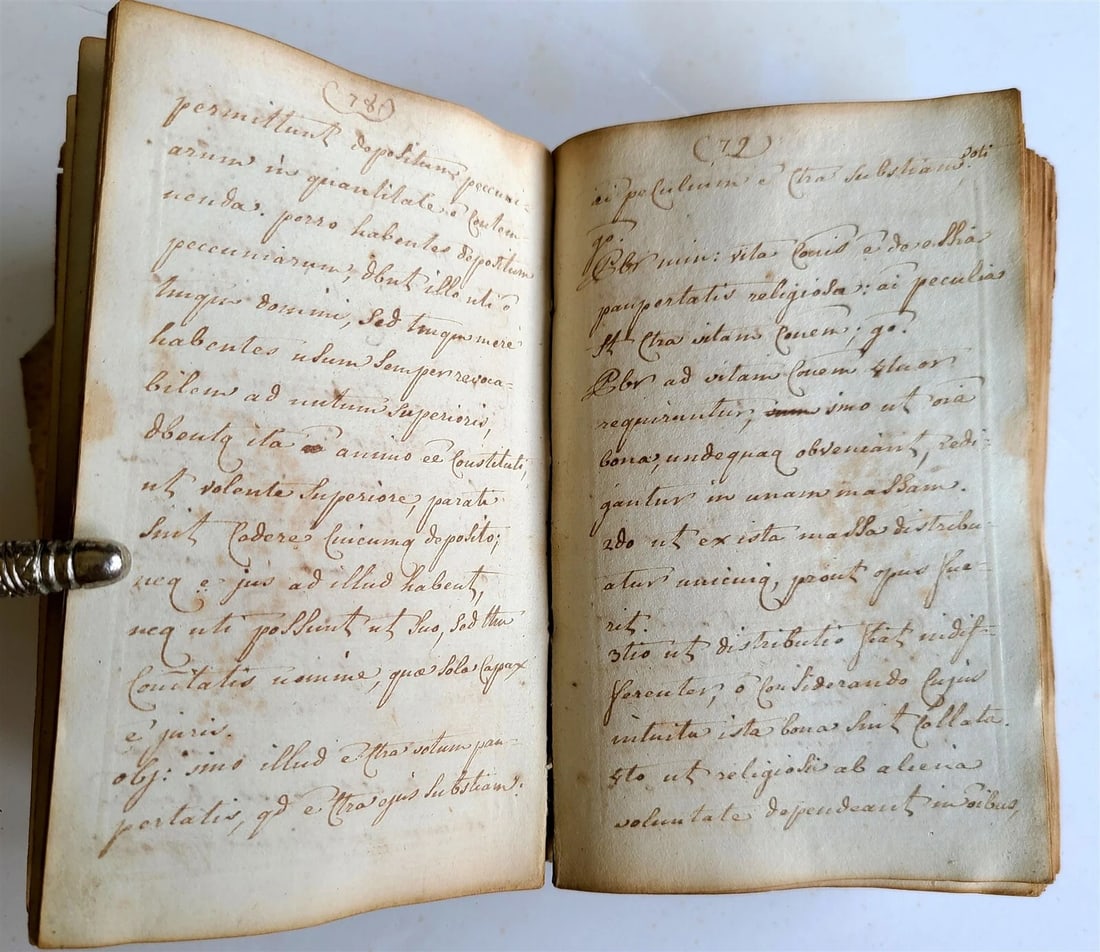 (78)
permittunt depositum pecuni-
arum in quantitate õ Contem-
nenda. porro habentes depositum
peccuniarum, dbent illo uti õ
tmqm domini, Sed tmqm merè
habentes usum Semper revoca-
bilem ad nutum Superioris,
dbentq ita animo ee Constituti,
ut volente Superiore, parati
Sint Cedere Cuicumq deposito;
neq e jus ad illud habent,
neq uti possunt ut Suo, Sed tm
Coũitatis nomine, quæ Sola Capax
ẽ juris.
obj: imò illud ẽ Ctra votum pau-
pertatis, qd ẽ Ctra ejus Substiam.
(79)
ai peculium ẽ Ctra Substiam voti
go.
Pbr min: vita Cõmis ẽ de essẽia
paupertatis religiosa: ai peculia
St Ctra vitam Cõuem; go.
Pbr ad vitam Cõuem 4tuor
requiruntur, imo ut oia
bona, undequaq obveniant, redi-
gantur in unam massam.
2do ut ex ista massa distribu-
atur unicuiq, prout opus fue-
rit.
3tio ut distributio fiat indif-
ferenter, õ Considerando Cujus
intuitu ista bona Sint Collata.
4to ut religiosi ab aliena
voluntate dependeant in oibus,